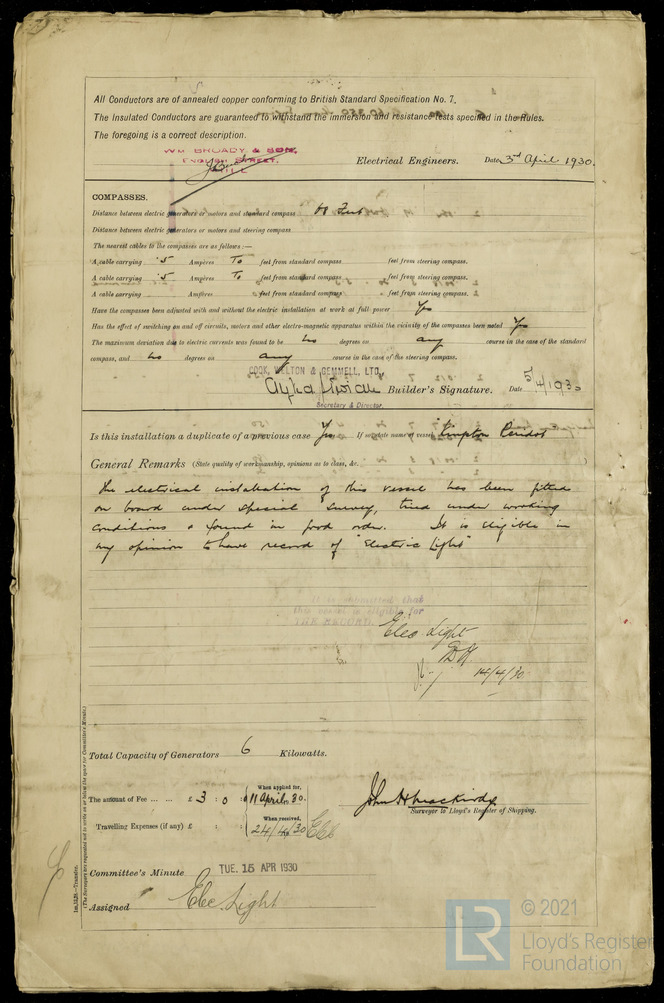 All Conductors are of annealed copper conforming to British Standard Specification No. 7.
The Insulated Conductors are guaranteed to withstand the immersion and resistance tests specified in the Rules.
The foregoing is a correct description.
WM BROADY & SON,
ENGLISH STREET,
HULL
Electrical Engineers. Date 3rd April 1930.
COMPASSES.
Distance between electric generators or motors and standard compass
Distance between electric generators or motors and steering compass
The nearest cables to the compasses are as follows:—
A cable carrying .5 Ampères To feet from standard compass feet from steering compass.
A cable carrying .5 Ampères To feet from standard compass feet from steering compass.
A cable carrying Ampères feet from standard compass feet from steering compass.
Have the compasses been adjusted with and without the electric installation at work at full power Yes
Has the effect of switching on and off circuits, motors and other electro-magnetic apparatus within the vicinity of the compasses been noted Yes
The maximum deviation due to electric currents was found to be no degrees on any course in the case of the standard
compass, and no degrees on any course in the case of the steering compass.
COOK, WELTON & GEMMELL, LTD.,
Builder's Signature. Date 5/4/1930
Secretary & Director.
Is this installation a duplicate of a previous case Yes If so, state name of vessel
General Remarks (State quality of workmanship, opinions as to class, &c.
The electrical installation of this vessel has been fitted
on board under special survey, tried under working
conditions & found in good order. It is eligible in
my opinion to have record of "Electric Light"
It is submitted that
this vessel is eligible for
THE RECORD.
Elec Light
14/4/30
Total Capacity of Generators 6 Kilowatts.
The amount of Fee ... ... £ 3 : 0 :
When applied for,
11 April 30.
Travelling Expenses (if any) £ : :
When received,
24/4/30
Surveyor to Lloyd's Register of Shipping.
Committee's Minute TUE. 15 APR 1930
Assigned Elec. Light
(The Surveyors are requested not to write on or below the space for Committee's Minute.)
LR
© 2021
Lloyd's Register
Foundation